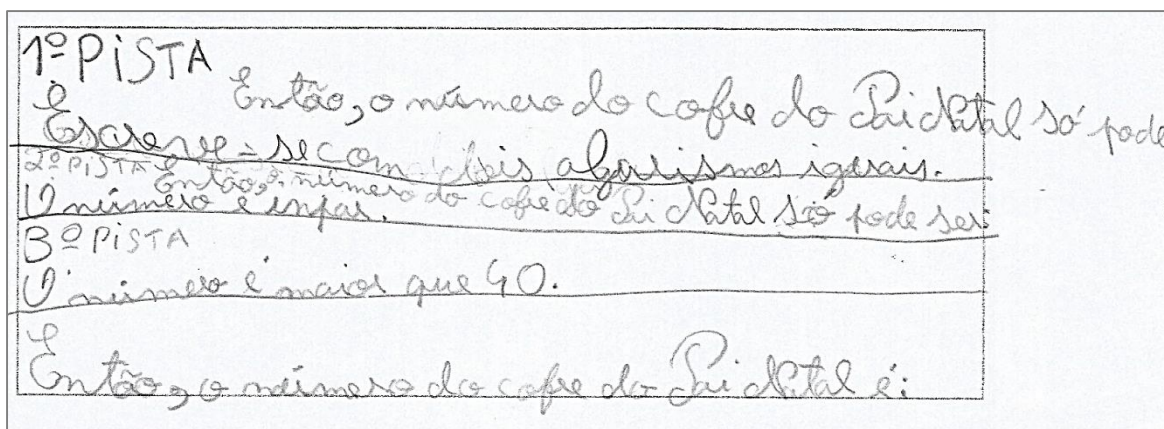 1º PiSTA
Então, o número do cofre do Pai Natal só pode
Escreve-se com dois algarismos iguais.
2º PiSTA
Então, o número do cofre do Pai Natal só pode ser:
O número é impar.
3º PiSTA
O número é maior que 40.
Então, o número do cofre do Pai Natal é: